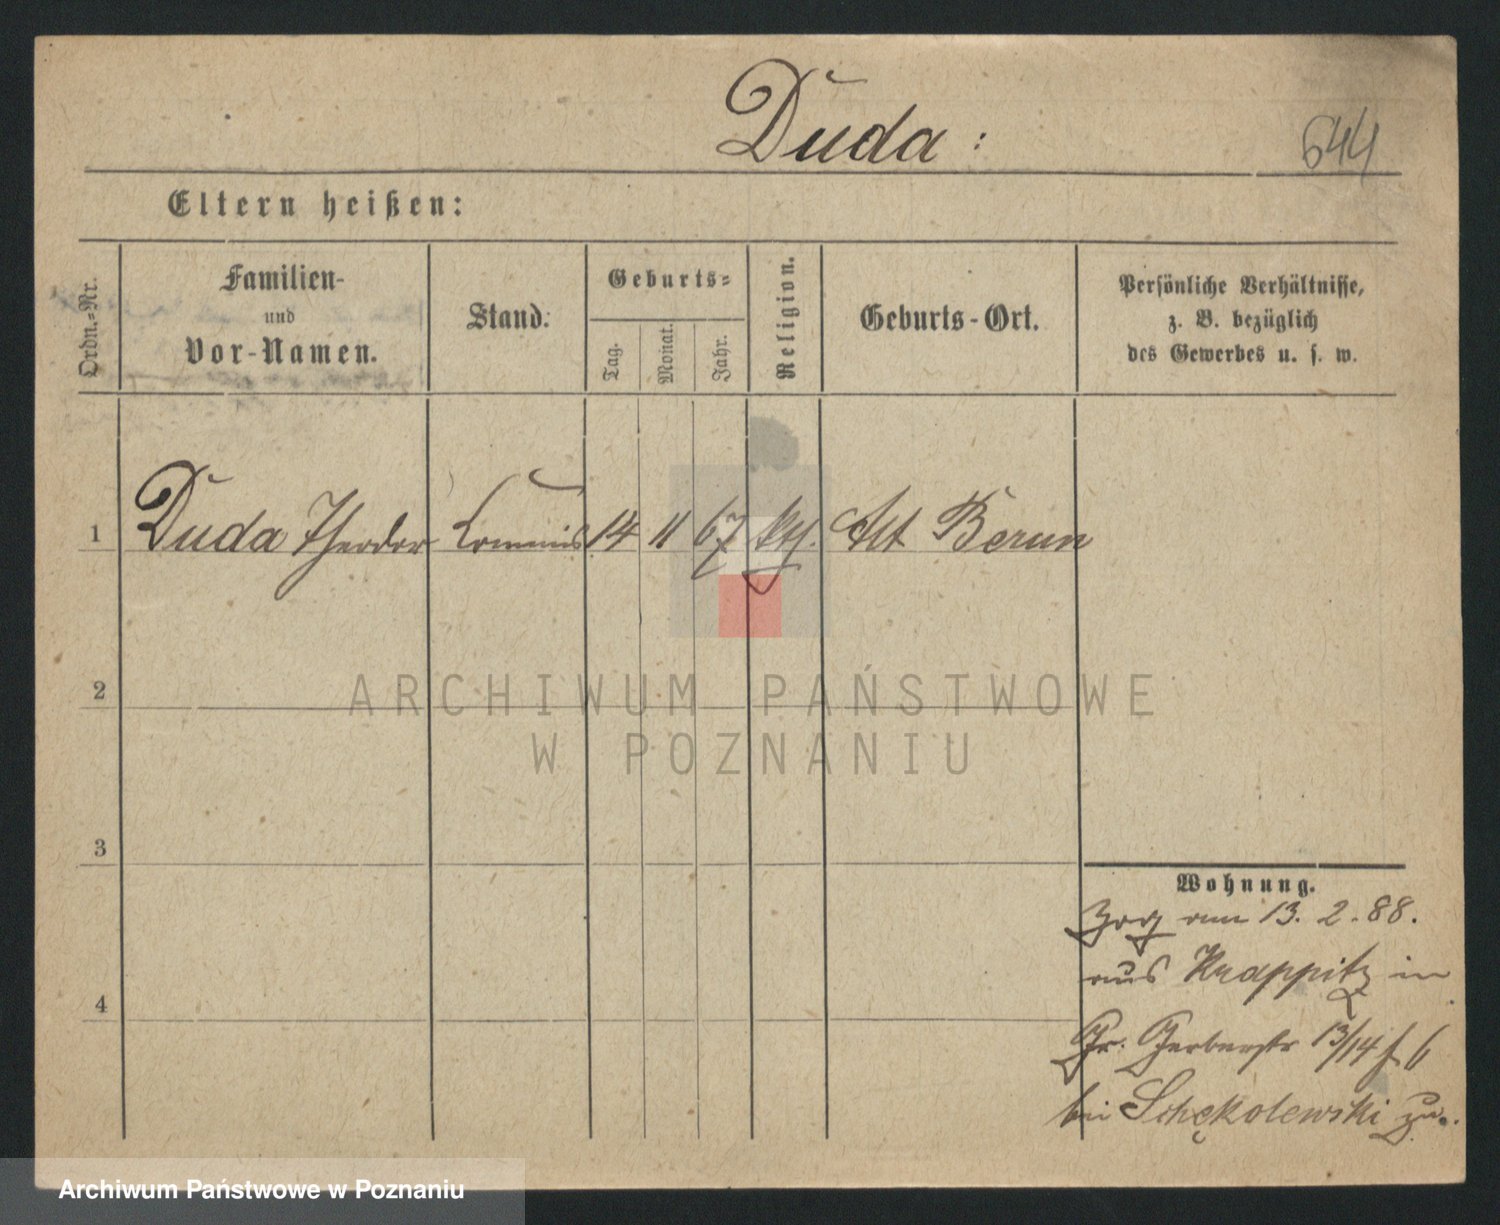 Duda:
644
Eltern heißen:
Ordn.-Nr.
Familien-
und
Vor-Namen.
Stand.
Geburts-
Tag.
Monat.
Jahr.
Religion.
Geburts-Ort.
Persönliche Verhältnisse,
z. B. bezüglich
des Gewerbes u. s. w.
1 Duda Theodor Commis 14 11 67 kth. Alt Berun
2
ARCHIWUM PAŃSTWOWE
W POZNANIU
3
Wohnung.
Zog am 13. 2. 88.
aus Krappitz in
4
Gr. Gerberstr 13/14 6
bei Schękolewski zu.
Archiwum Państwowe w Poznaniu